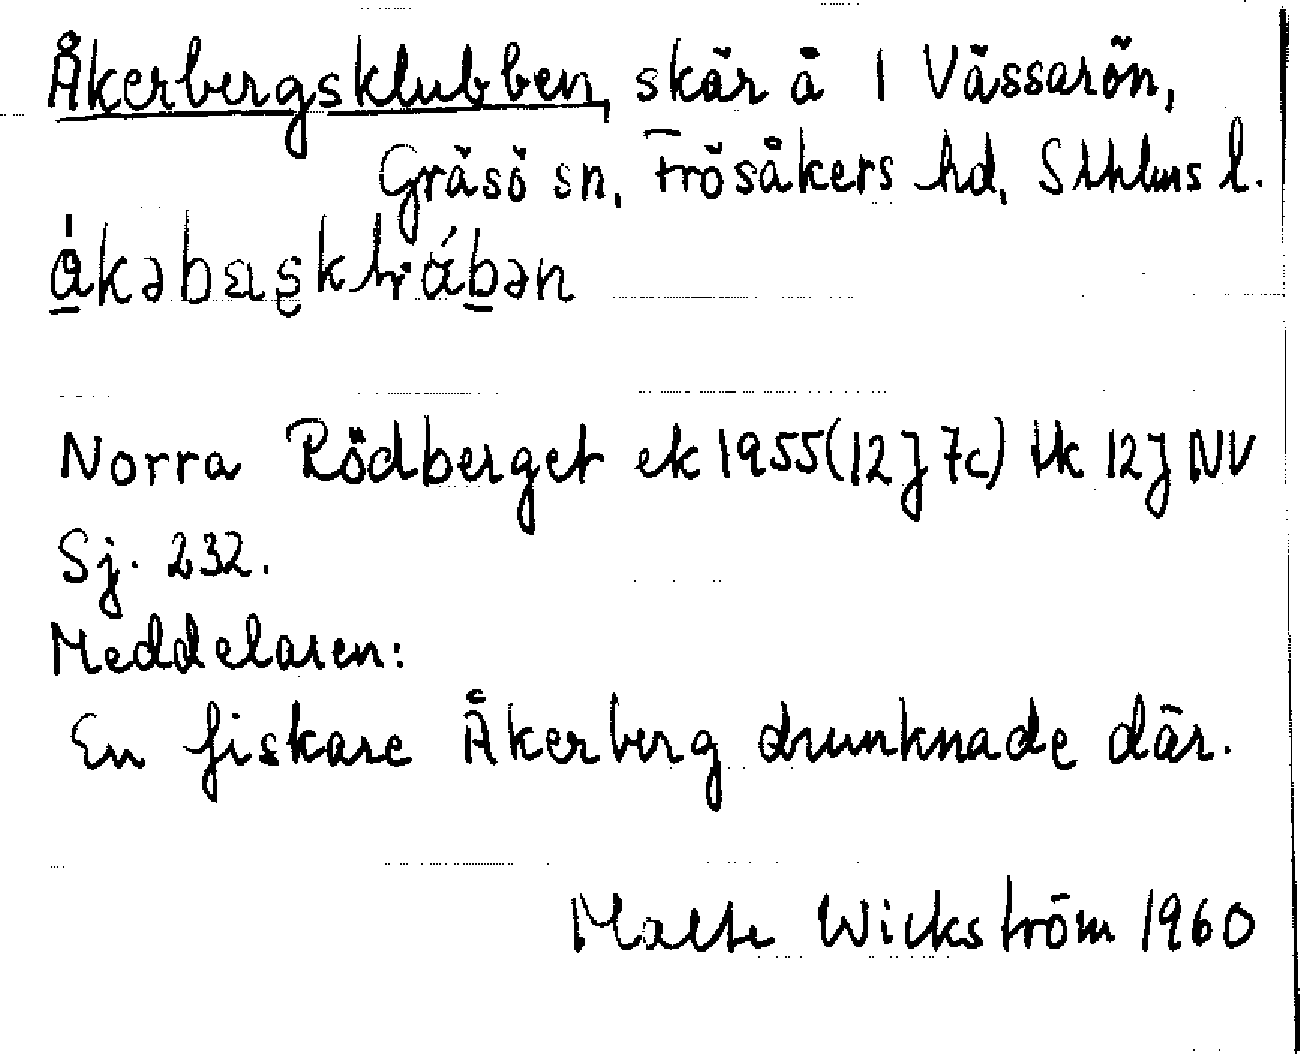 Åkerbergsklubben, skär å 1 Vässarön,
Gräsö sn, Frösåkers hd, Sthlms l.
Norra Rödberget ek 1955 (12 J 7c) tk 12 J NV
Sj. 232.
Meddelaren:
En fiskare Åkerberg drunknade där.
Malte Wickström 1960